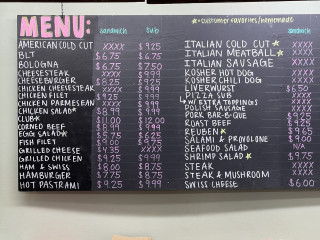 MENU:
sandwich sub
AMERICAN COLD CUT XXXX $9.25
BLT $6.75 $6.75
BOLOGNA $6.75 $7.50
CHEESESTEAK XXXX $9.99
CHEESEBURGER $8.25 $9.25
CHICKEN CHEESESTEAK XXXX $9.99
CHICKEN FILET $9.25
CHICKEN PARMESEAN XXXX $9.99
CHICKEN SALAD* $8.99
CLUB* $11.00 $12.00
CORNED BEEF $8.99 $9.99
EGG SALAD* $5.75 $6.25
FISH FILET $9.00 $9.75
GRILLED CHEESE $4.35 XXXX
GRILLED CHICKEN $9.25 $9.99
HAM & SWISS $8.00 $8.75
HAMBURGER $7.75 $8.75
HOT PASTRAMI $9.25 $9.99
*=customer favorites/homemade
sandwich
ITALIAN COLD CUT * XXXX
ITALIAN MEATBALL * XXXX
ITALIAN SAUSAGE XXXX
KOSHER HOT DOG XXXX
KOSHER CHILI DOG XXXX
LIVERWURST $6.50
PIZZA SUB XXXX
w/ EXTRA TOPPINGS XXXX
POLISH SAUSAGE XXXX
PORK BAR-B-QUE $9.25
ROAST BEEF $9.25
REUBEN * $9.65
SALAMI & PROVOLONE $9.00
SEAFOOD SALAD N/A
SHRIMP SALAD * $9.75
STEAK XXXX
STEAK & MUSHROOM XXXX
SWISS CHEESE $6.00